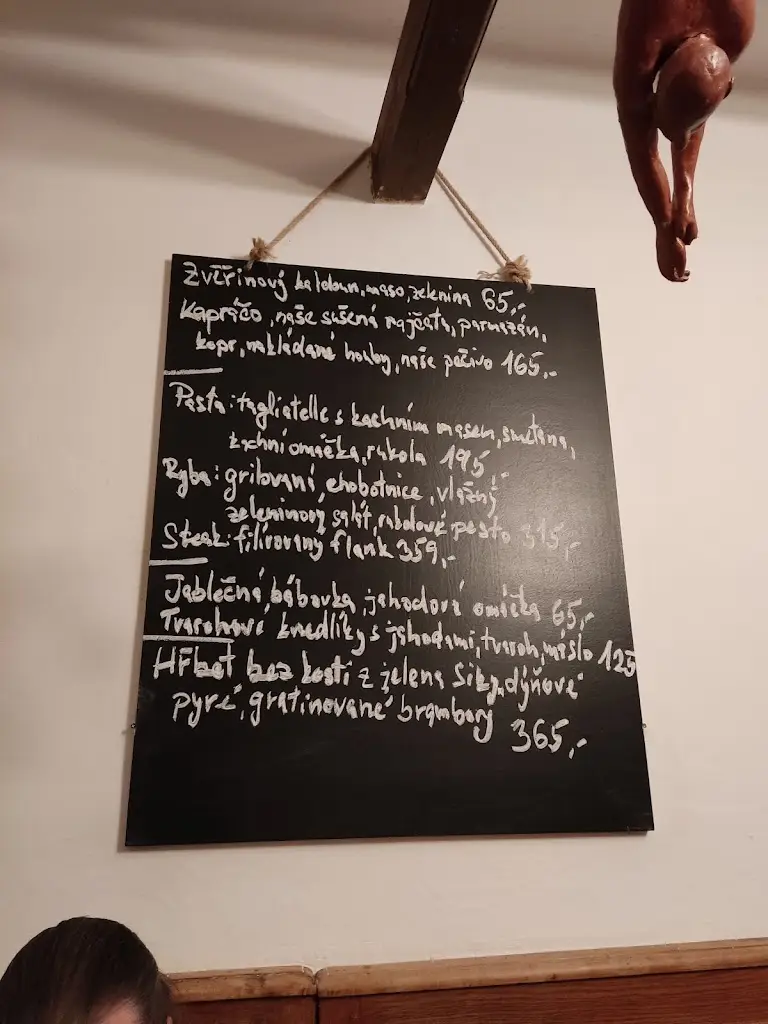 Zvěřinový kaldoun, maso, zelenina 65,-
Kapráčo, naše sušená rajčata, parmazán,
kopr, nakládané houby, naše pečivo 165,-
Pasta: tagliatelle s kachním masem, smetana,
kachní omáčka, rukola 195
Ryba: grilovaní chobotnice, vlažný
zeleninový salát, rukolové pesto 315,-
Steak: filírovaný flank 359,-
Jablečná bábovka, jahodová omáčka 65,-
Tvarohové knedlíky s jahodami, tvaroh, máslo 125
Hřbet bez kosti z jelena Siky, dýňové
pyré, gratinované brambory
365,-